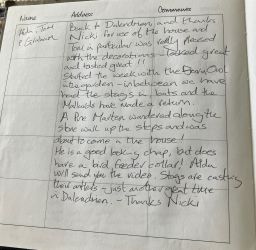 Name Address Comments
Back to Dalendrian and thanks
Nicki for use of the house and
Toni in particular was really pleased
with the decorations - looked great
and tasted great!
Started the week with the
- in between we have
had the stags, bats and the
Mallards have made a return.
A Pine Marten wandered along the
stone wall up the steps and was
about to come in the house!
He is a good looking chap, but does
have a bird feeder collar! Alda
will send you the video. Stags are casting
their antlers - just another great time
in Dalendrian. - Thanks Nicki